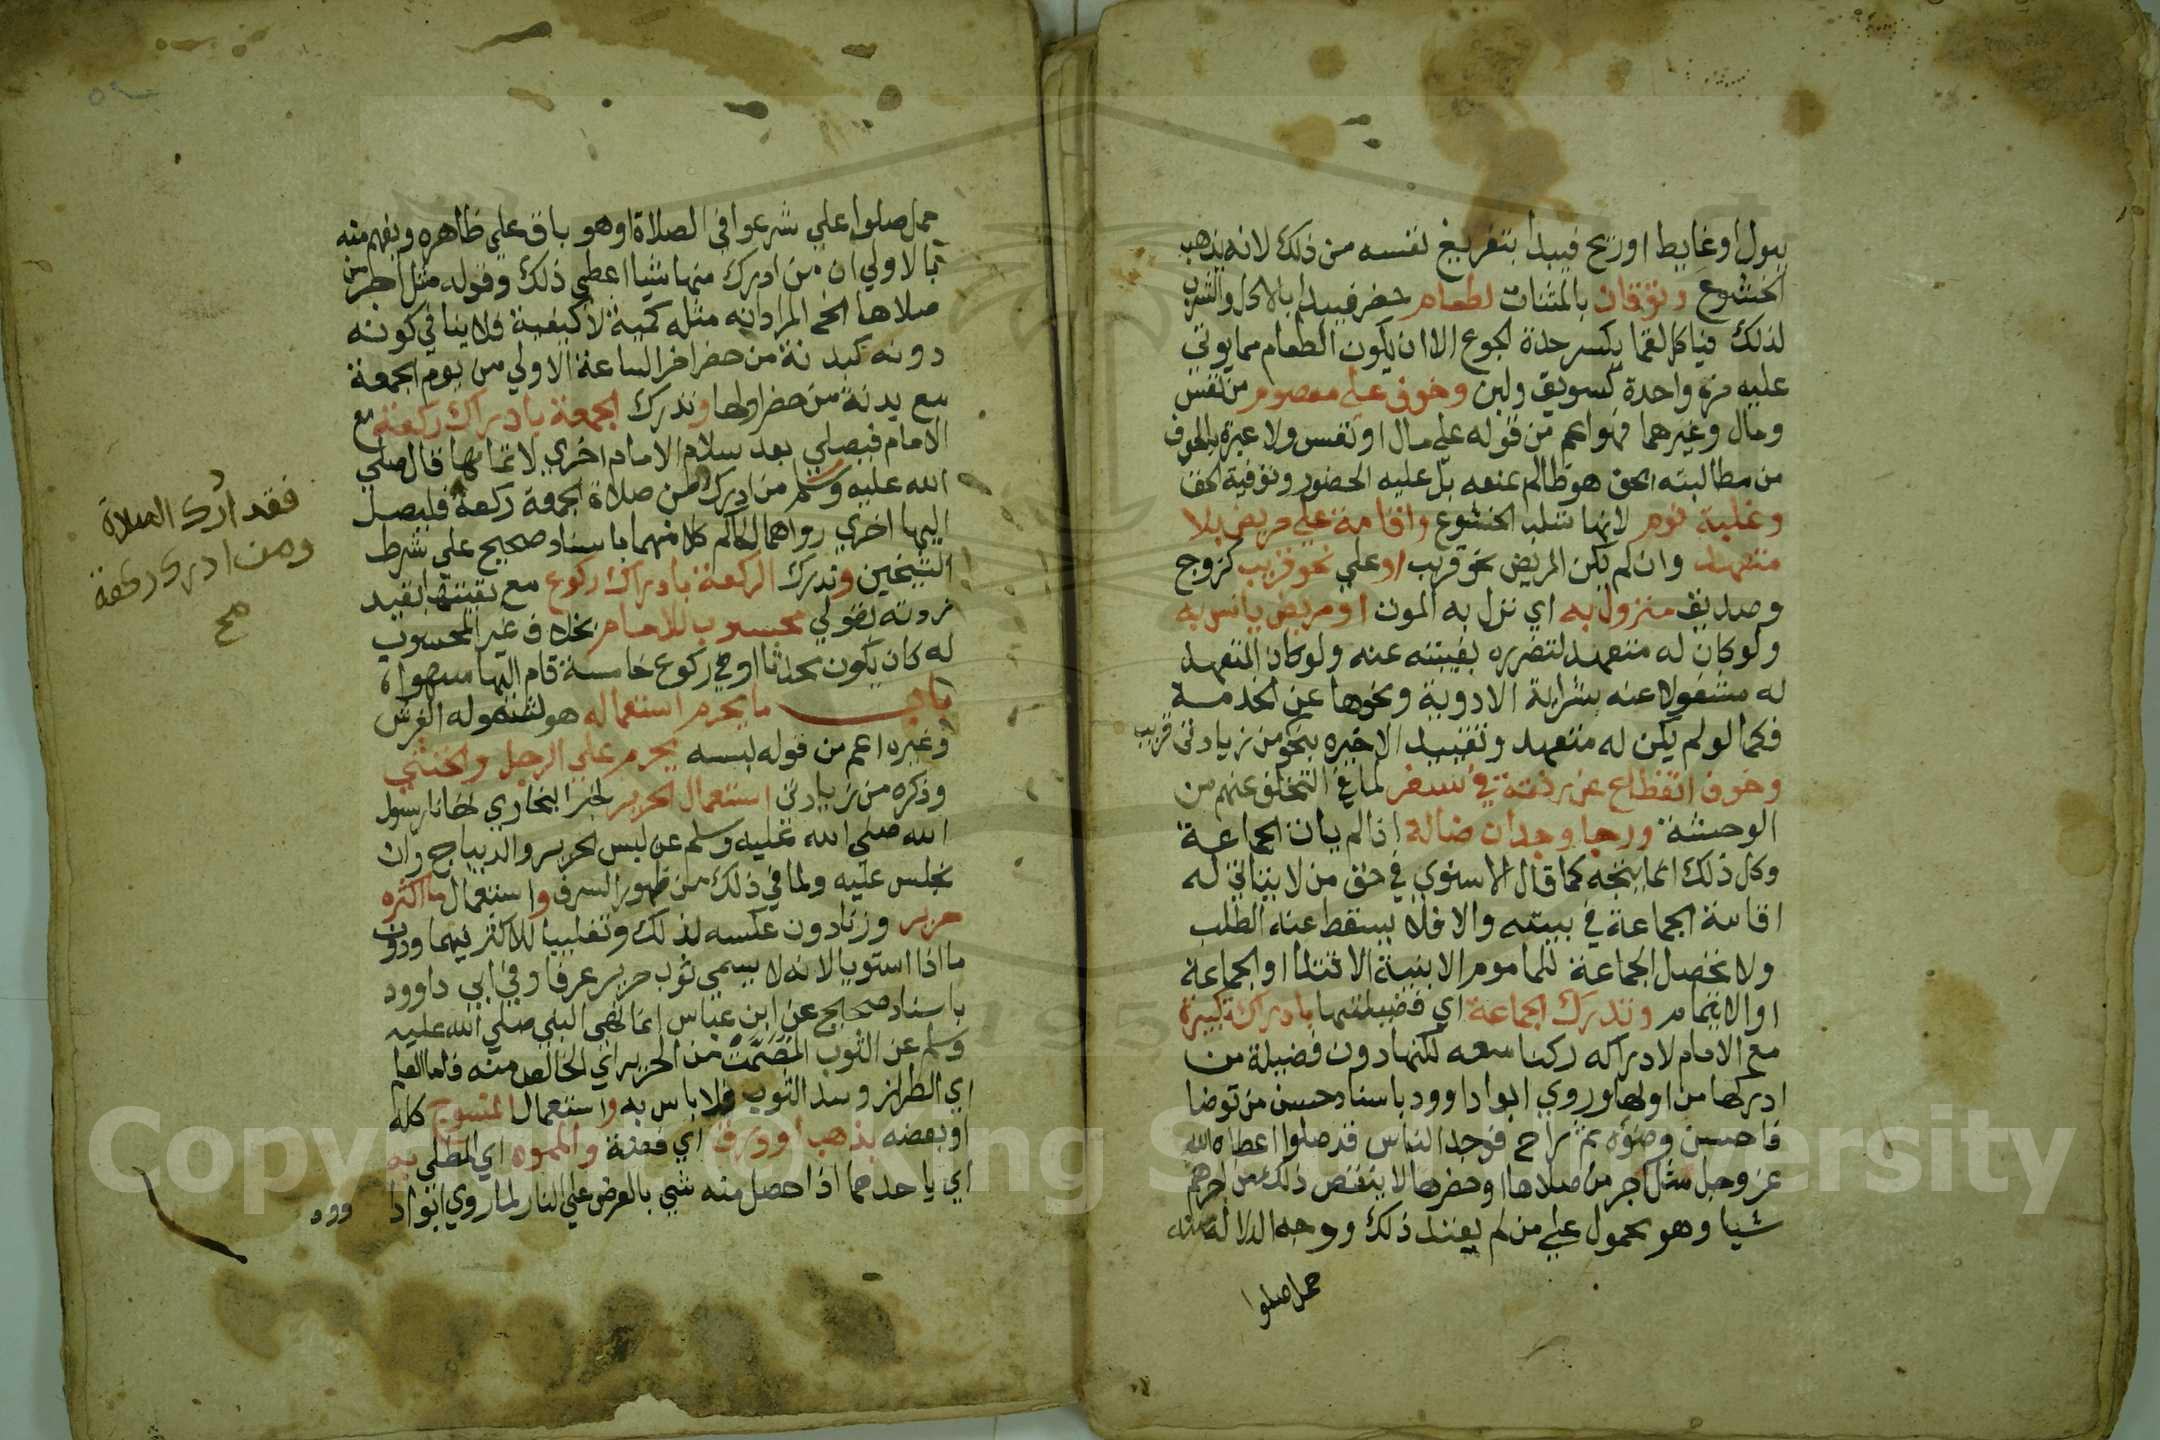 ببول او غايط او ريح فيبدا بتفريغ نفسه من ذلك لانه يذهب
الخشوع وتوقان بالمثناة لطعام حضر فيبدا بالاكل والشرب
لذلك فياكل لقما يكسر حدة الجوع الا ان يكون الطعام مما يوتي
عليه مرة واحدة كسويق ولبن وخوف علي معصوم من نفس
ومال وغيرهما فهو اعم من قوله علي مال او نفس ولا عبرة بالخوف
من مطالبته بحق هو ظالم بمنعه بل عليه الحضور وتوفية الحق
وغلبة نوم لانها تسلب الخشوع واقامة علي مريض بلا
متعهد وان لم يكن المريض نحو قريب او علي نحو قريب كزوج
وصديق منزول به اي نزل به الموت او مريض يانس به
ولو كان له متعهد لتضرره بغيبته عنه ولو كان المتعهد
له مشغولا عنه بشراء الادوية ونحوها عن الخدمة
فكما لو لم يكن له متعهد وتقييد الاخيره بنحو من زيادتي قريب
وخوف انقطاع عن رفقة في سفر لما في التخلف عنهم من
الوحشة ورجا وجدان ضالة اذا لم يات الجماعة
وكل ذلك انما يتجه كما قال الاسنوي في حق من لا يتاتي له
اقامة الجماعة في بيته والا فلا يسقط عنه الطلب
ولا تحصل الجماعة للماموم الا بنية الاقتدا او الجماعة
او الايتمام وتدرك الجماعة اي فضيلتها بادراك تكبيرة
مع الامام لادراكه ركنا معه لكنها دون فضيلة من
ادركها من اولها وروي ابو داوود باسناد حسن من توضا
فاحسن وضوءه ثم راح فوجد الناس قد صلوا اعطاه الله
عز وجل مثل اجر من صلاها او حضرها لا ينقص ذلك من اجرهم
شيا وهو محمول علي من لم يعتد ذلك ووجه الدلالة منه
حمل صلوا
حمل صلوا علي شرعوا في الصلاة او هو باق علي ظاهره ويفهم منه
بالاولي ان من ادرك منها شيا اعطي ذلك وقوله مثل اجر من
صلاها الخ المراد انه مثله كمية لا كيفية فلا ينافي كونه
دونه كبدنة من حضر اخر الساعة الاولي من يوم الجمعة
مع بدنة من حضر اولها وتدرك الجمعة بادراك ركعة مع
الامام فيصلي بعد سلام الامام اخري لاتمامها قال صلي
الله عليه وسلم من ادرك من صلاة الجمعة ركعة فليصل
اليها اخري رواهما الحاكم كلا منهما باسناد صحيح علي شرط
الشيخين وتدرك الركعة بادراك ركوع مع بقيتها بقيد
زدته بقولي محسوب للامام بخلاف غير المحسوب
له كان يكون محدثا او في ركوع خامسة قام اليها سهوا
باب ما يحرم استعماله هو لشموله الفرش
وغيره اعم من قوله لبسه يحرم علي الرجل والخنثي
وذكره من زيادتي استعمال الحرير لخبر البخاري نهانا رسول
الله صلي الله عليه وسلم عن لبس الحرير والديباج وان
نجلس عليه ولما في ذلك من ظهور السرف واستعمال ما اكثره
حرير وزنا دون عكسه لذلك وتغليبا للاكثر فيهما ودون
ما اذا استويا لانه لا يسمي ثوب حرير عرفا وفي ابي داوود
باسناد صحيح عن ابن عباس انما نهي النبي صلي الله عليه
وسلم عن الثوب المصمت من الحرير اي الخالص منه فاما العلم
اي الطراز وسدا الثوب فلا باس به واستعمال المنسوج كله
او بعضه بذهب او ورق اي فضة والمموه اي المطلي به
اي باحدهما اذا حصل منه شي بالعرض علي النار لما روي ابو دا
وود
فقد ادرك الصلاة
ومن ادرك ركعة
صح
Copyright © King Saud University